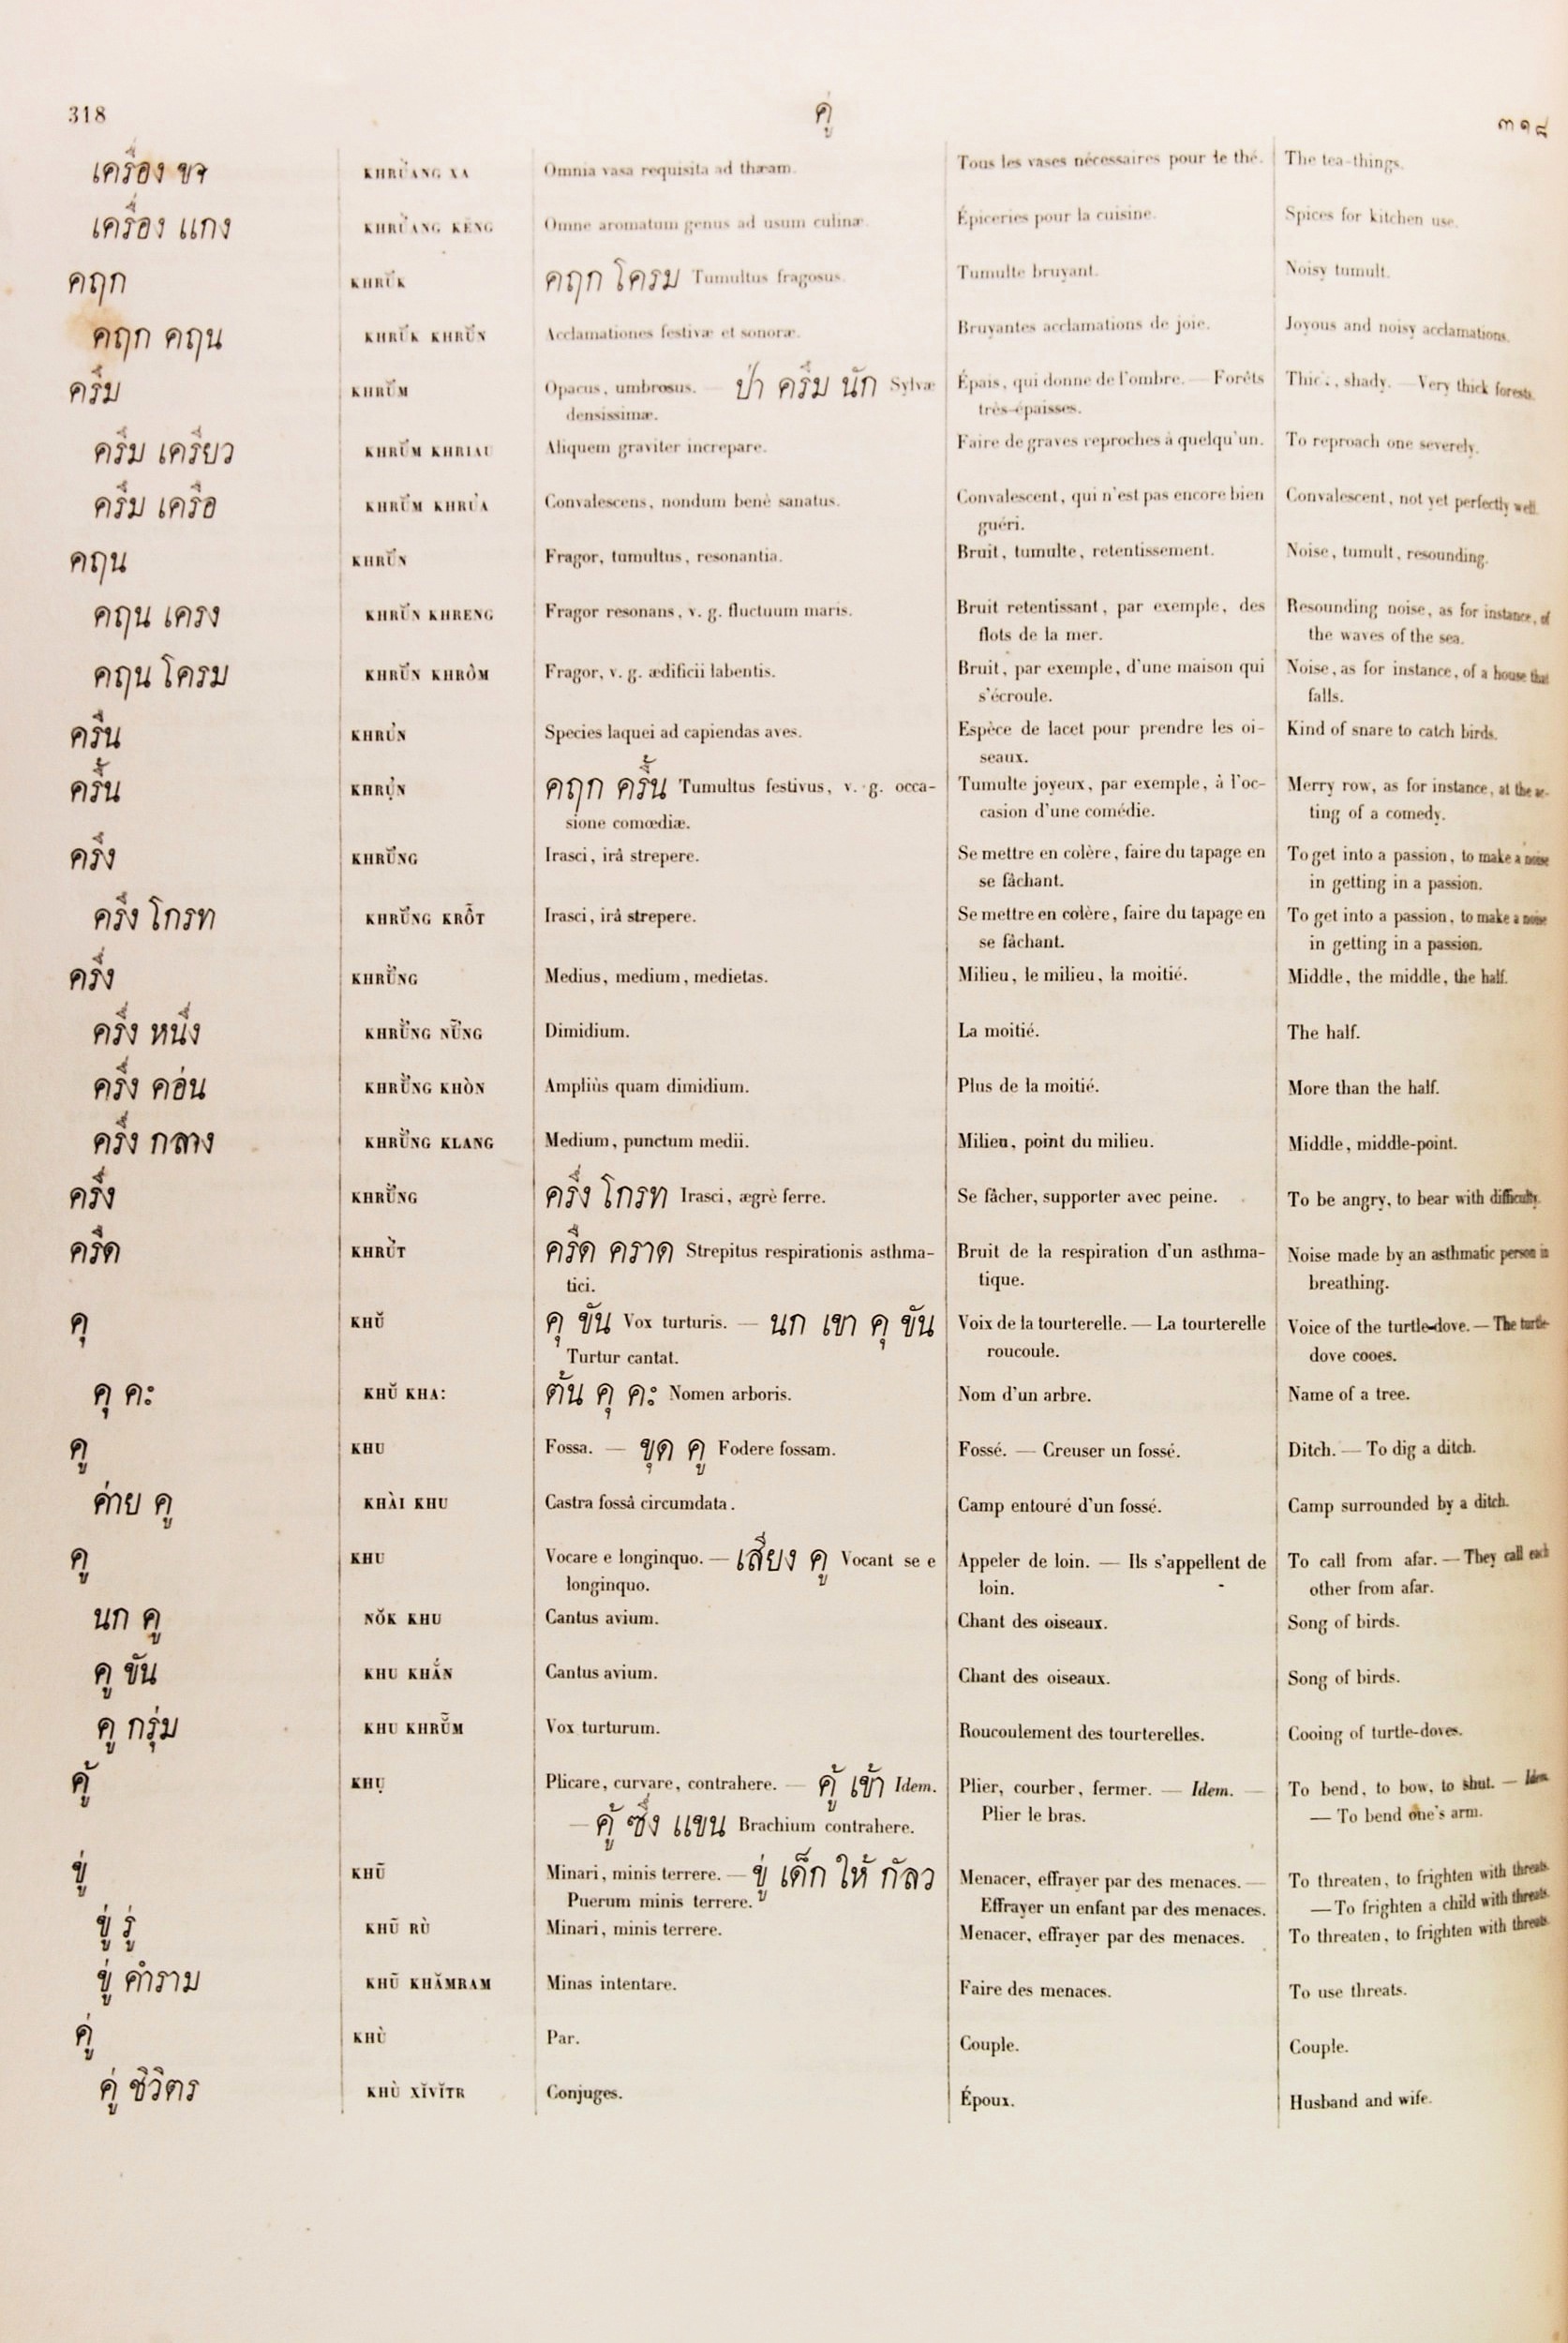 318 คู่ ๓๑๘
เครื่อง ชา KHRU̕ÀNG XA Omnia vasa requisita ad thæam. Tous les vases nécessaires pour le thé. The tea-things.
เครื่อง แกง KHRU̕ÀNG KENG Omne aromatum genus ad usum culinæ. Épiceries pour la cuisine. Spices for kitchen use.
คฤก KHRŬ̕K คฤก โครม Tumultus fragosus. Tumulte bruyant. Noisy tumult.
คฤก คฤน KHRŬ̕K KHRŬ̕N Acclamationes festivæ et sonoræ. Bruyantes acclamations de joie. Joyous and noisy acclamations.
ครึม KHRŬ̕M Opacus, umbrosus. — ป่า ครึม นัก Sylvæ Épais, qui donne de l'ombre. — Forêts Thick, shady. — Very thick forests.
densissimæ. très-épaisses.
ครึม เครียว KHRŬ̕M KHRIAU Aliquem graviter increpare. Faire de graves reproches à quelqu'un. To reproach one severely.
ครึม เครือ KHRŬ̕M KHRU̕A Convalescens, nondum benè sanatus. Convalescent, qui n'est pas encore bien Convalescent, not yet perfectly well.
guéri.
คฤน KHRŬ̕N Fragor, tumultus, resonantia. Bruit, tumulte, retentissement. Noise, tumult, resounding.
คฤน เครง KHRŬ̕N KHRENG Fragor resonans, v. g. fluctuum maris. Bruit retentissant, par exemple, des Resounding noise, as for instance, of
flots de la mer. the waves of the sea.
คฤน โครม KHRŬ̕N KHRÒM Fragor, v. g. ædificii labentis. Bruit, par exemple, d'une maison qui Noise, as for instance, of a house that
s'écroule. falls.
ครืน KHRU̕N Species laquei ad capiendas aves. Espèce de lacet pour prendre les oi- Kind of snare to catch birds.
seaux.
ครื้น KHRỤ̕N คฤก ครื้น Tumultus festivus, v. g. occa- Tumulte joyeux, par exemple, à l'oc- Merry row, as for instance, at the ac-
sione comœdiæ. casion d'une comédie. ting of a comedy.
ครึง KHRŬ̕NG Irasci, irâ strepere. Se mettre en colère, faire du tapage en To get into a passion, to make a noise
se fâchant. in getting in a passion.
ครึง โกรท KHRŬ̕NG KRỖT Irasci, irâ strepere. Se mettre en colère, faire du tapage en To get into a passion, to make a noise
se fâchant. in getting in a passion.
ครึ่ง KHRŬ̀̕NG Medius, medium, medietas. Milieu, le milieu, la moitié. Middle, the middle, the half.
ครึ่ง หนึ่ง KHRŬ̀̕NG NŨ̕NG Dimidium. La moitié. The half.
ครึ่ง ค่อน KHRŬ̀̕NG KHÒN Ampliùs quam dimidium. Plus de la moitié. More than the half.
ครึ่ง กลาง KHRŬ̀̕NG KLANG Medium, punctum medii. Milieu, point du milieu. Middle, middle-point.
ครึ่ง KHRŬ̀̕NG ครึ่ง โกรท Irasci, ægrè ferre. Se fâcher, supporter avec peine. To be angry, to bear with difficulty.
ครืด KHRÙ̕T ครืด คราด Strepitus respirationis asthma- Bruit de la respiration d'un asthma- Noise made by an asthmatic person in
tici. tique. breathing.
คุ KHŬ คุ ขัน Vox turturis. — นก เขา คุ ขัน Voix de la tourterelle. — La tourterelle Voice of the turtle-dove. — The turtle-
Turtur cantat. roucoule. dove cooes.
คุ คะ KHŬ KHA: ต้น คุ คะ Nomen arboris. Nom d'un arbre. Name of a tree.
คู KHU Fossa. — ขุด คู Fodere fossam. Fossé. — Creuser un fossé. Ditch. — To dig a ditch.
ค่าย คู KHÀI KHU Castra fossâ circumdata. Camp entouré d'un fossé. Camp surrounded by a ditch.
คู KHU Vocare e longinquo. — เสียง คู Vocant se e Appeler de loin. — Ils s'appellent de To call from afar. — They call each
longinquo. loin. other from afar.
นก คู NŎK KHU Cantus avium. Chant des oiseaux. Song of birds.
คู ขัน KHU KHẮN Cantus avium. Chant des oiseaux. Song of birds.
คู กรุ่ม KHU KHRŬ̃M Vox turturum. Roucoulement des tourterelles. Cooing of turtle-doves.
คู้ KHỤ Plicare, curvare, contrahere. — คู้ เข้า Idem. Plier, courber, fermer. — Idem. — To bend, to bow, to shut. — Idem.
— คู้ ซึ่ง แขน Brachium contrahere. Plier le bras. — To bend one's arm.
ขู่ KHŨ Minari, minis terrere. — ขู่ เด็ก ให้ กัลว Menacer, effrayer par des menaces. — To threaten, to frighten with threats.
Puerum minis terrere. Effrayer un enfant par des menaces. — To frighten a child with threats.
ขู่ รู่ KHŨ RÙ Minari, minis terrere. Menacer, effrayer par des menaces. To threaten, to frighten with threats.
ขู่ คำราม KHŨ KHĂMRAM Minas intentare. Faire des menaces. To use threats.
คู่ KHÙ Par. Couple. Couple.
คู่ ชิวิตร KHÙ XĬVĬTR Conjuges. Époux. Husband and wife.